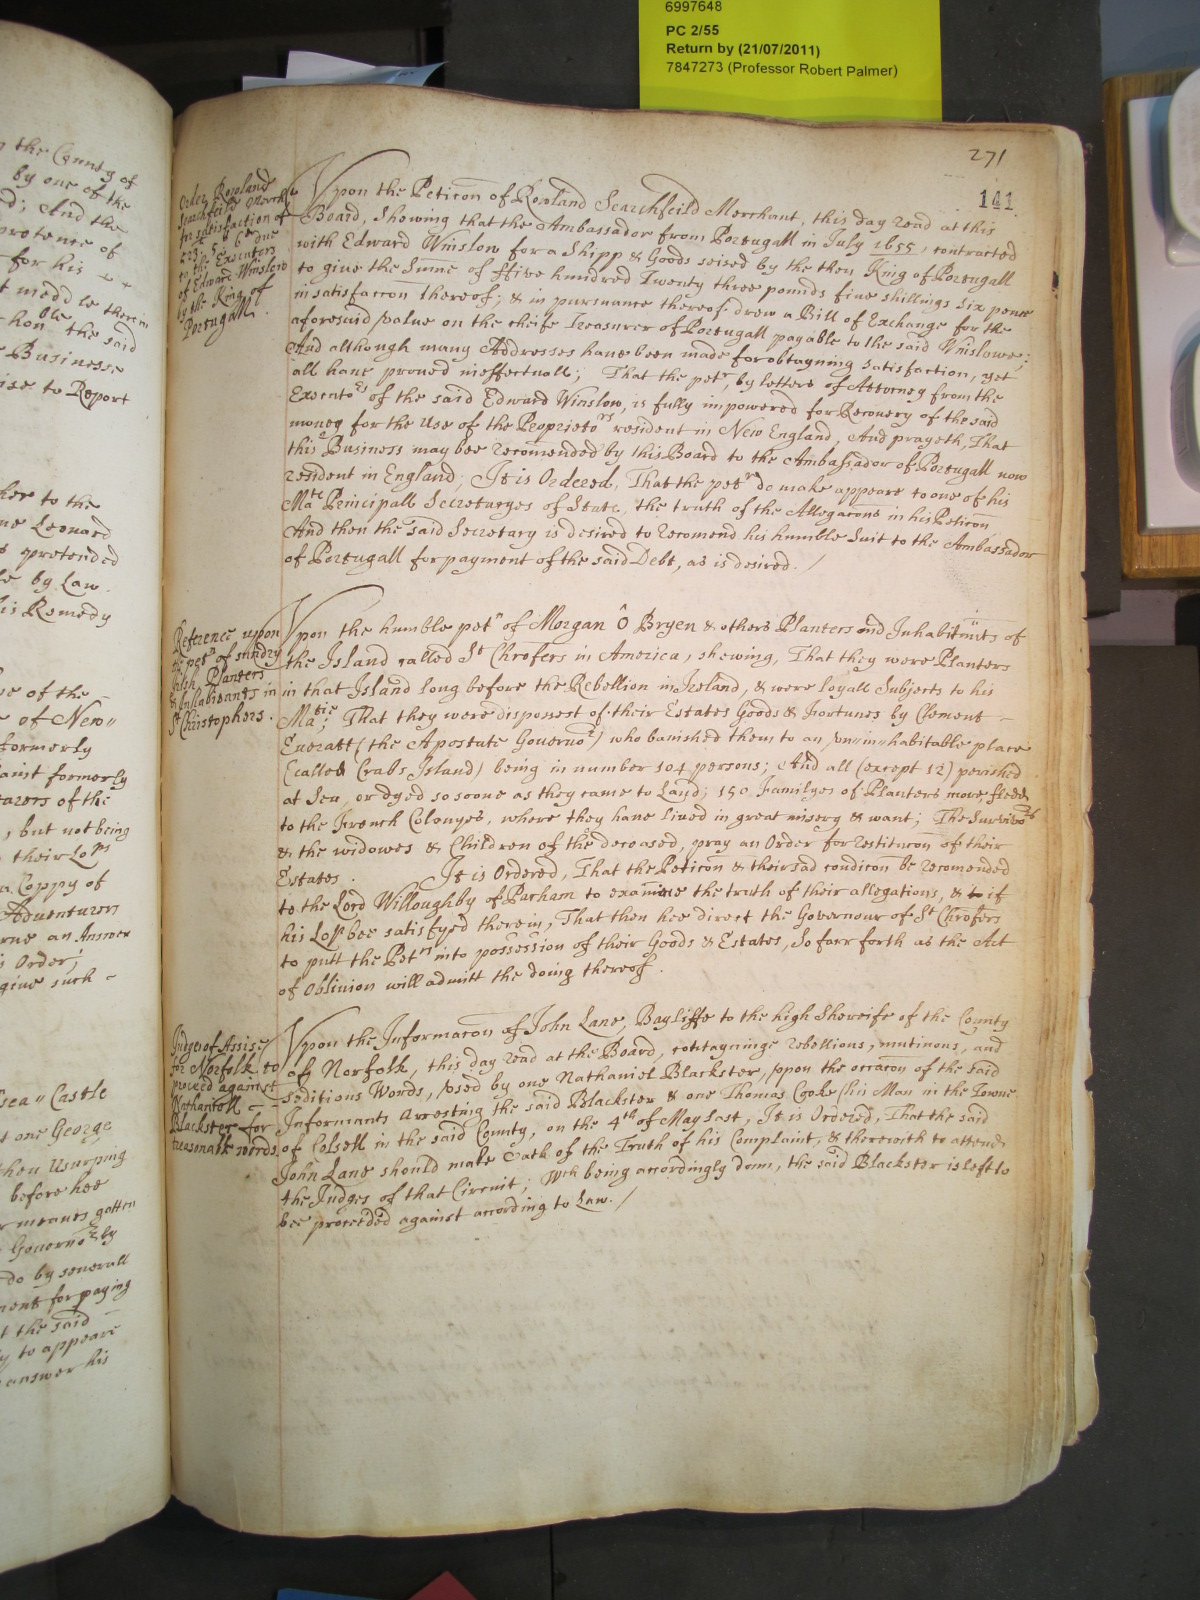 6997648
PC 2/55
Return by (21/07/2011)
7847273 (Professor Robert Palmer)
271
141
the County of
by one of the
And the
pretence of
for his
medle therein
the said
Businesse
to Report
to the
Leonard
pretended
by Law.
his Remedy
of the
of New=
formerly
formerly
of the
, but not being
their Lo:ps
a Coppy of
Adventurers
an Answer
Order;
give such
Castle
one George
then Usurping
before hee
meanes gotten
Governo:r by
do by severall
for paying
the said
to appeare
answer his
Order Rowland
Searchfeild Merch:t
in satisfaction of
523:l 5:s 6:d one
to the Executors
of Edward Winslow
by the King of
Portugall.
Vpon the Peticon of Rowland Searchfeild Merchant, this day read at this
Board, Showing that the Ambassador from Portugall in July 1655, contracted
with Edward Winslow for a Shipp & Goods seised by the then King of Portugall
to give the Summe of ffive hundred Twenty three pounds five shillings six pence
in satisfaccon thereof; & in poursuance thereof drew a Bill of Exchange for the
aforesaid value on the cheife Treasurer of Portugall payable to the said Winslowe;
And although many Addresses have been made for obtayning satisfaction, yet
all have proved ineffectuall; That the pet:r, by letters of Attorney from the
Executo:rs of the said Edward Winslow, is fully impowered for Recovery of the said
money for the Use of the Proprieto:rs resident in New England, And prayeth, That
this Business may bee recomended by this Board to the Ambassador of Portugall now
resident in England; It is Ordered, That the pet:r do make appeare to one of his
Ma:ts Principall Secretaryes of State, the truth of the Allegacons in his Peticon
And then the said Secretary is desired to recomend his humble Suit to the Ambassador
of Portugall for payment of the said Debt, as is desired. /
Reference upon
the pet:n of sundry
Irish Planters
& Inhabitants in
S:t Christophers.
Vpon the humble pet:n of Morgan Ô Bryen & others Planters and Inhabitants of
the Island called S:t Chrofers in America, shewing, That they were Planters
in that Island long before the Rebellion in Ireland, & were loyall Subjects to his
Ma:tie; That they were dispossest of their Estates Goods & Fortunes by Clement
Everatt (the Apostate Governo:r) who banished them to an vn=in=habitable place
(called Crabs Island) being in number 104 persons; And all (except 12) perished
at Sea, or dyed so soone as they came to Land; 150 Familyes of Planters more fledd
to the French Colonyes, where they have lived in great misery & want; The Survivo:rs
& the widowes & Children of the deceased, pray an Order for restitucon of their
Estates. It is Ordered, That the Peticon & their sad condicon be recomended
to the Lord Willoughby of Parham to examine the truth of their allegations, & to if
his Lo:p bee satisfyed therein, That then hee direct the Governour of S:t Chrofers
to putt the Pet:rs into possession of their Goods & Estates, So farr forth as the Act
of Oblivion will admitt the doing thereof.
Judges of Assise
for Norfolk to
proceed against
Nathaniell
Blackster for
treasonable words.
Vpon the Informacon of John Lane, Bayliffe to the high Shereife of the County
of Norfolk, this day read at the Board, contayninge rebellious, mutinous, and
seditious Words, vsed by one Nathaniel Blackster, vpon the occacon of the said
Informants Arresting the said Blackster & one Thomas Cooke his Man in the Towne
of Colsell in the said County, on the 4:th of May last, It is Ordered, That the said
John Lane should make Oath of the Truth of his Complaint, & therewith to attend
the Judges of that Circuit; W:ch being accordingly donn, the said Blackster is left to
bee proceeded against according to Law. /